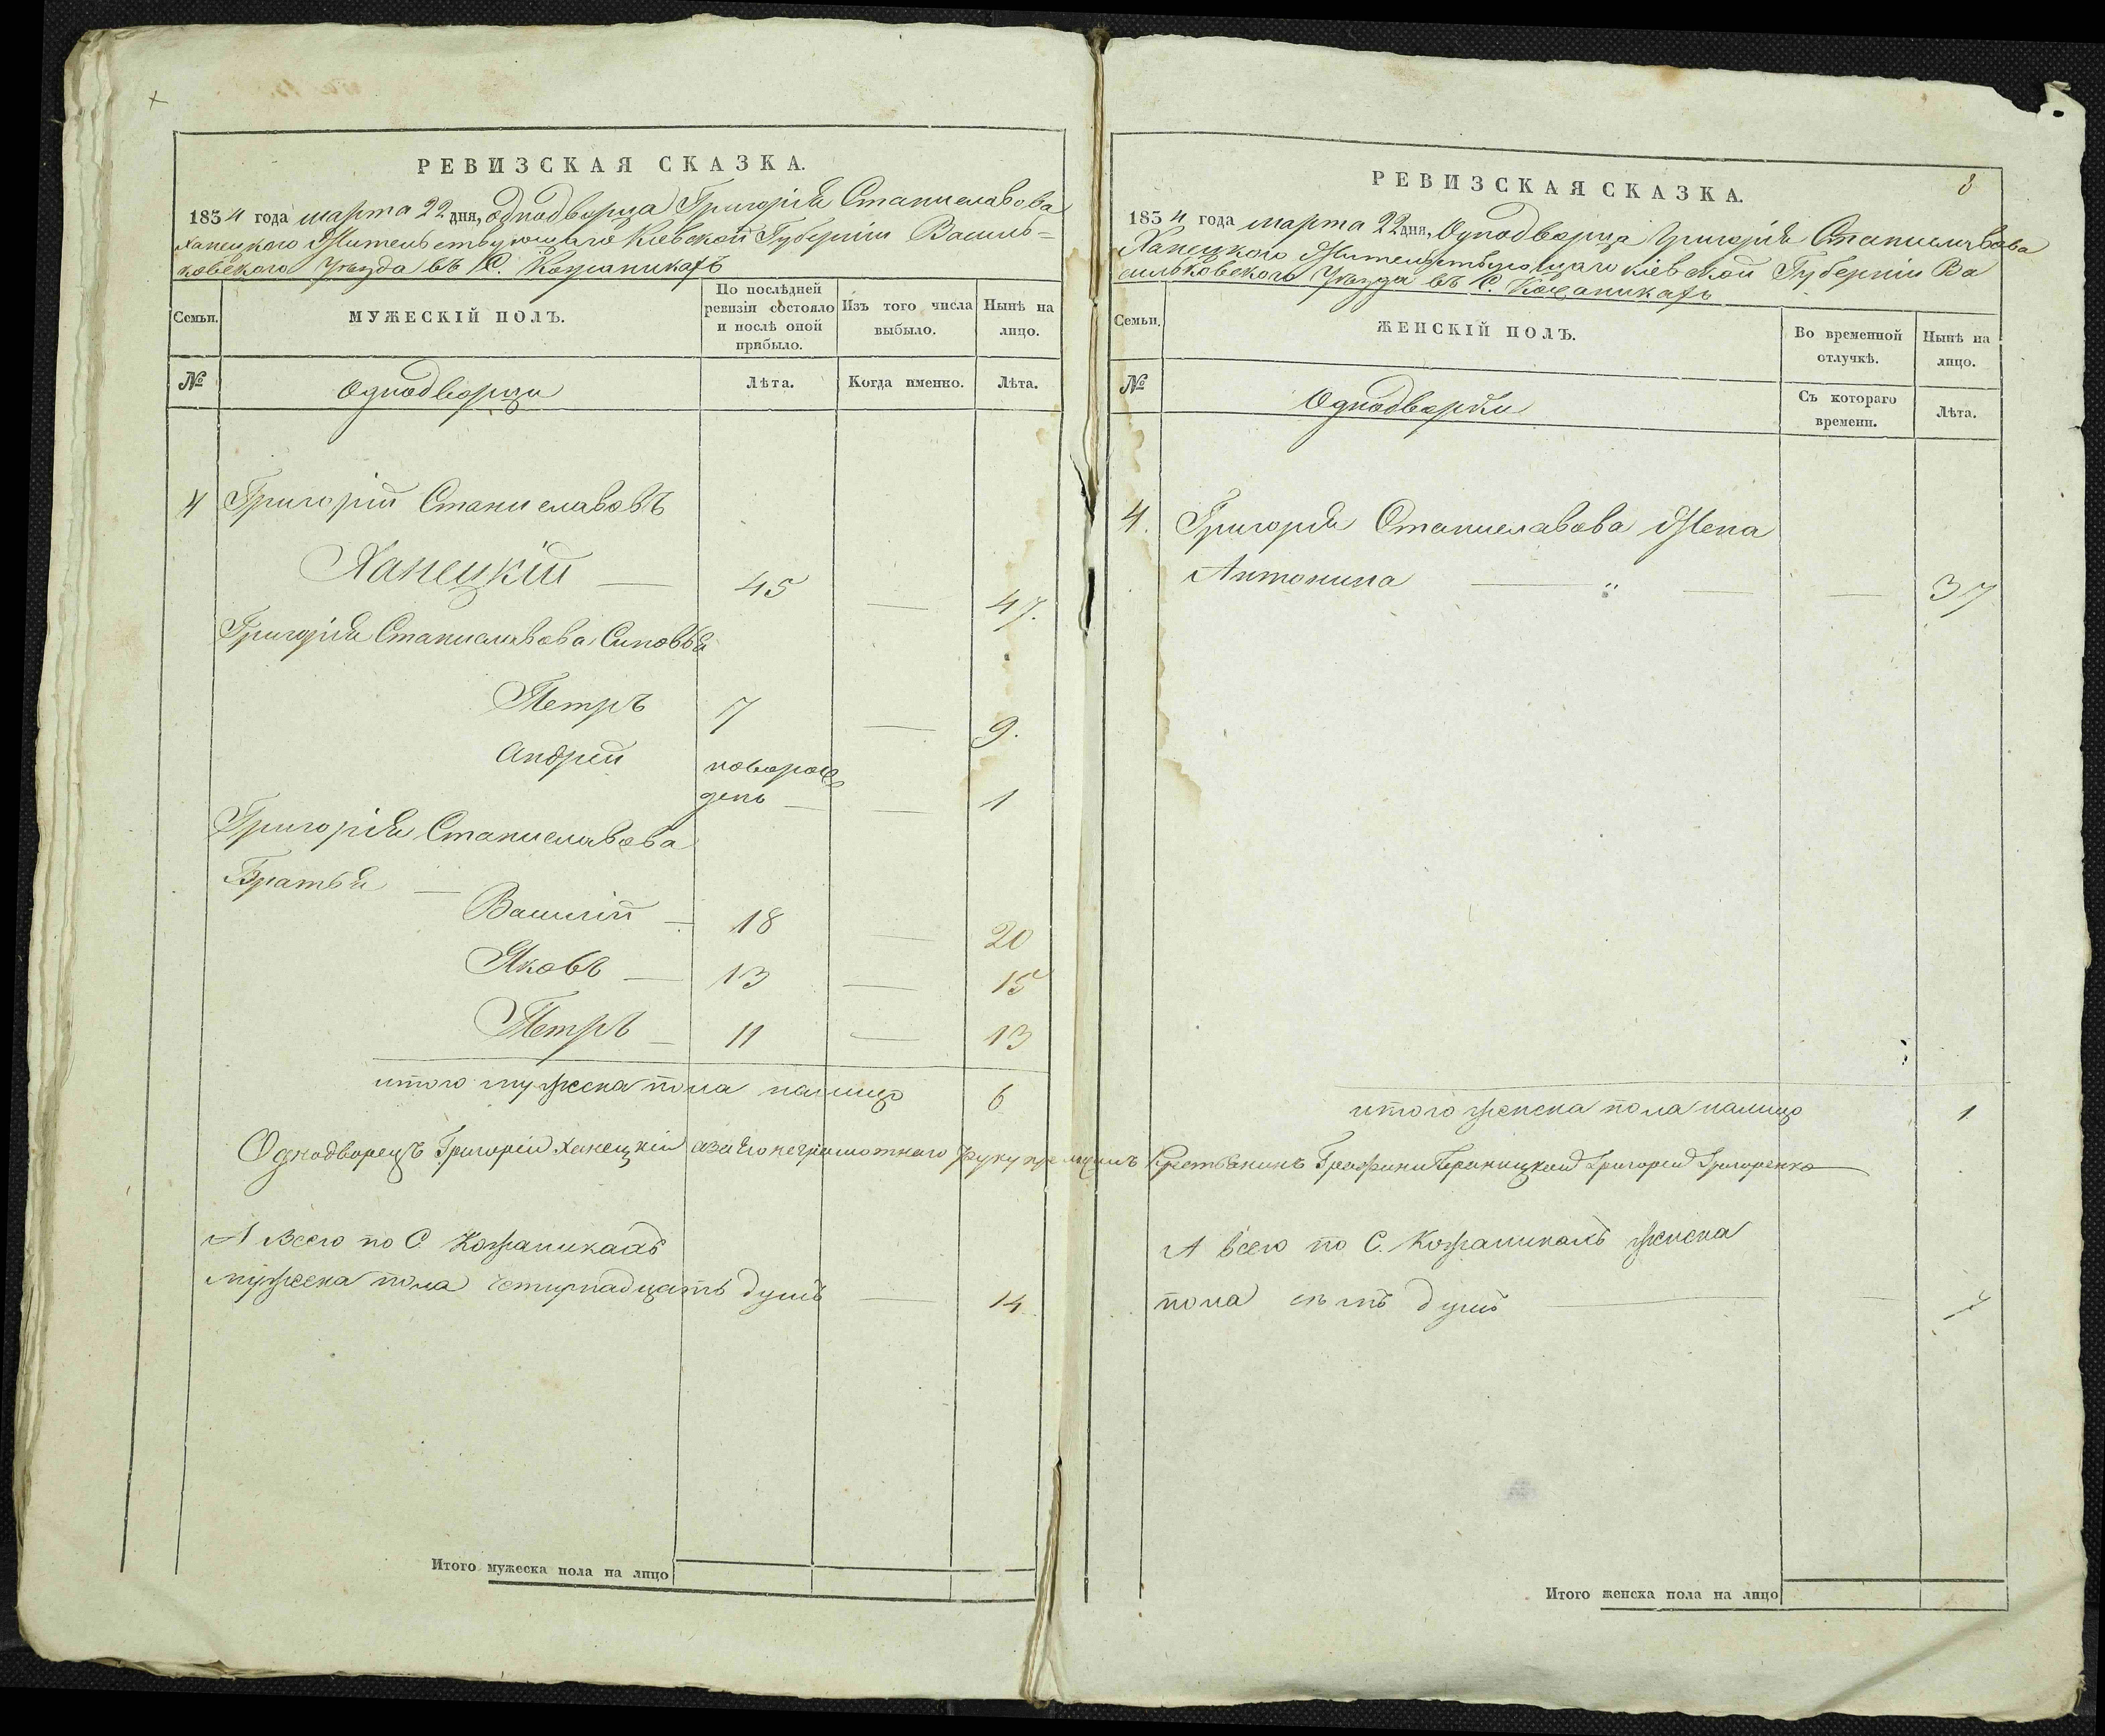 РЕВИЗСКАЯ СКАЗКА.
1834 года марта 22 дня, однодворца Григорія Станиславова
Ханецкого Жительствующаго Кіевской Губерніи Василь=
ковского уѣзда въ С. Кожаникахъ
Семьи.
МУЖЕСКІЙ ПОЛЪ.
По послѣдней ревизіи состояло и послѣ оной прибыло.
Изъ того числа выбыло.
Нынѣ на лицо.
№
Однодворци
Лѣта.
Когда именно.
Лѣта.
4 Григорій Станиславовъ
Ханецкій — 45 — 47.
Григорія Станиславова Синовья
Петръ 7 — 9.
Андрей новорож
денъ — — 1
Григорія Станиславова
Братья —
Василій — 18 — 20
Яковъ — 13 — 15
Петръ — 11 — 13
итого мужеска пола налицо 6
Однодворецъ Григорій Ханецкій а за Его неграмотнаго руку приложилъ Крестьянинъ Графини Браницкой Григорей Григоренко
А всего по С. Кожаникахъ
мужеска пола четирнадцать душъ — 14
Итого мужеска пола на лицо
РЕВИЗСКАЯ СКАЗКА.
8
1834 года марта 22 дня, Однодворца Григорія Станиславова
Ханецкого Жительствующаго кіевской Губерніи Ва
сильковского уѣзда въ С. Кожаникахъ
Семьи.
ЖЕНСКІЙ ПОЛЪ.
Во временной отлучкѣ.
Нынѣ на лицо.
№
Однодворки
Съ котораго времени.
Лѣта.
4. Григорія Станиславова Жена
Антонина — " — — 37
итого женска пола налицо 1
А всего по С. Кожаникахъ женска
пола семъ душъ — — 7
Итого женска пола на лицо